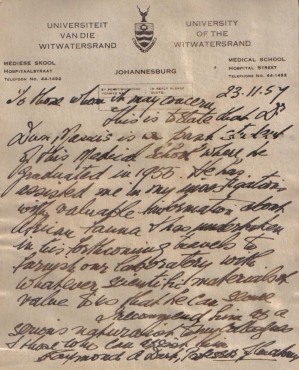 UNIVERSITEIT
VAN DIE
WITWATERSRAND
UNIVERSITY
OF THE
WITWATERSRAND
MEDIESE SKOOL
HOSPITAALSTRAAT
TELEFOON No. 44-1482
JOHANNESBURG
MEDICAL SCHOOL
HOSPITAL STREET
TELEPHONE No. 44-1482
IN REPLY PLEASE
QUOTE
23.11.57
To those whom it may concern
This is to state that Dr
is a past student
of this Medical School where he
graduated in 1950. He has
assisted me in my investigations
with valuable information about
African fauna & has undertaken
in his forthcoming travels to
furnish our laboratory with
whatever scientific materials of
value to us that he can
I recommend him as a
serious naturalist to my colleagues
& those who can assist him
Raymond A Dart, Professor of Anatomy